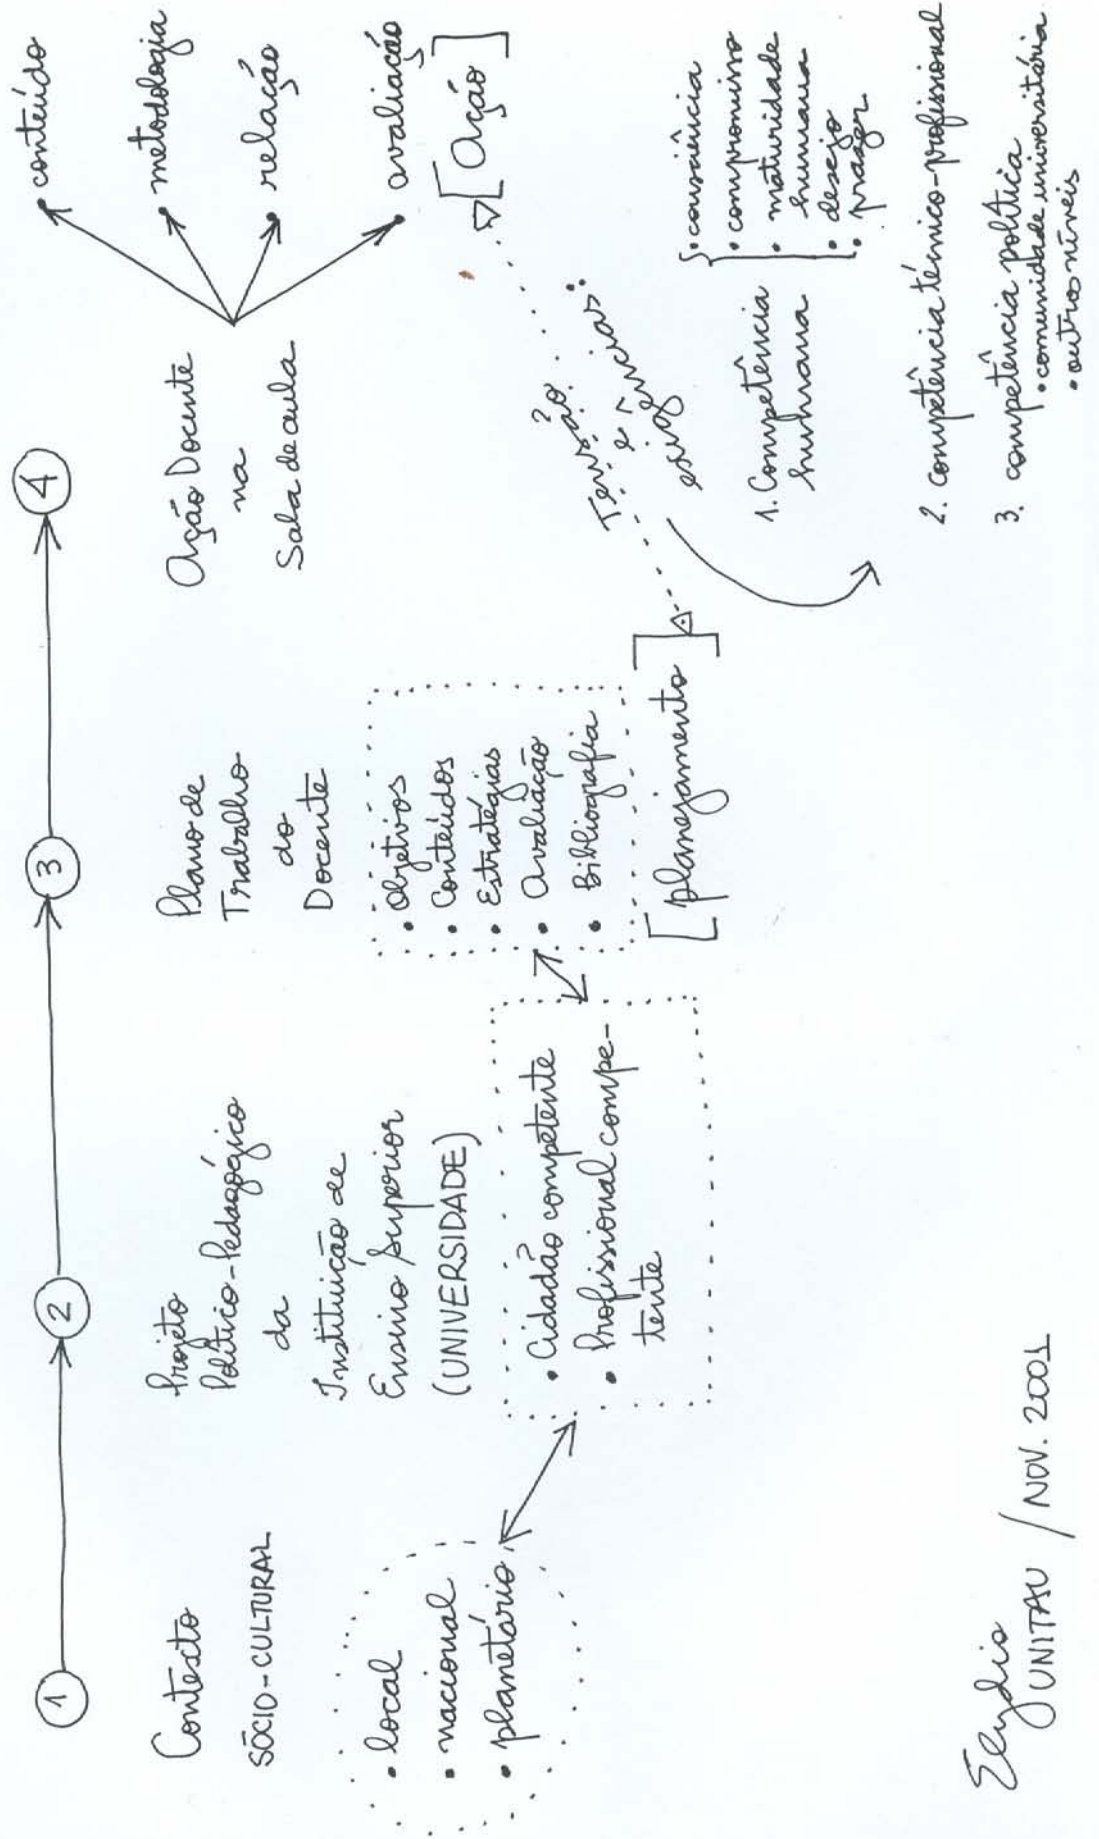 1
2
3
4
Contexto
SÓCIO-CULTURAL
• local
• nacional
• planetário
Projeto
Político-Pedagógico
da
Instituição de
Ensino Superior
(UNIVERSIDADE)
• Cidadão competente
• Profissional compe-
tente
Plano de
Trabalho
do
Docente
• Objetivos
• Conteúdos
• Estratégias
• Avaliação
• Bibliografia
[planejamento]
Ação Docente
na
Sala de aula
• conteúdo
• metodologia
• relação
• avaliação
[Ação]
Tensão
e
exigências:
1. Competência
humana
• consciência
• compromisso
• maturidade
humana
• desejo
• prazer
2. competência técnico-profissional
3. competência política
• comunidade universitária
• outros níveis
UNITAU / NOV. 2001